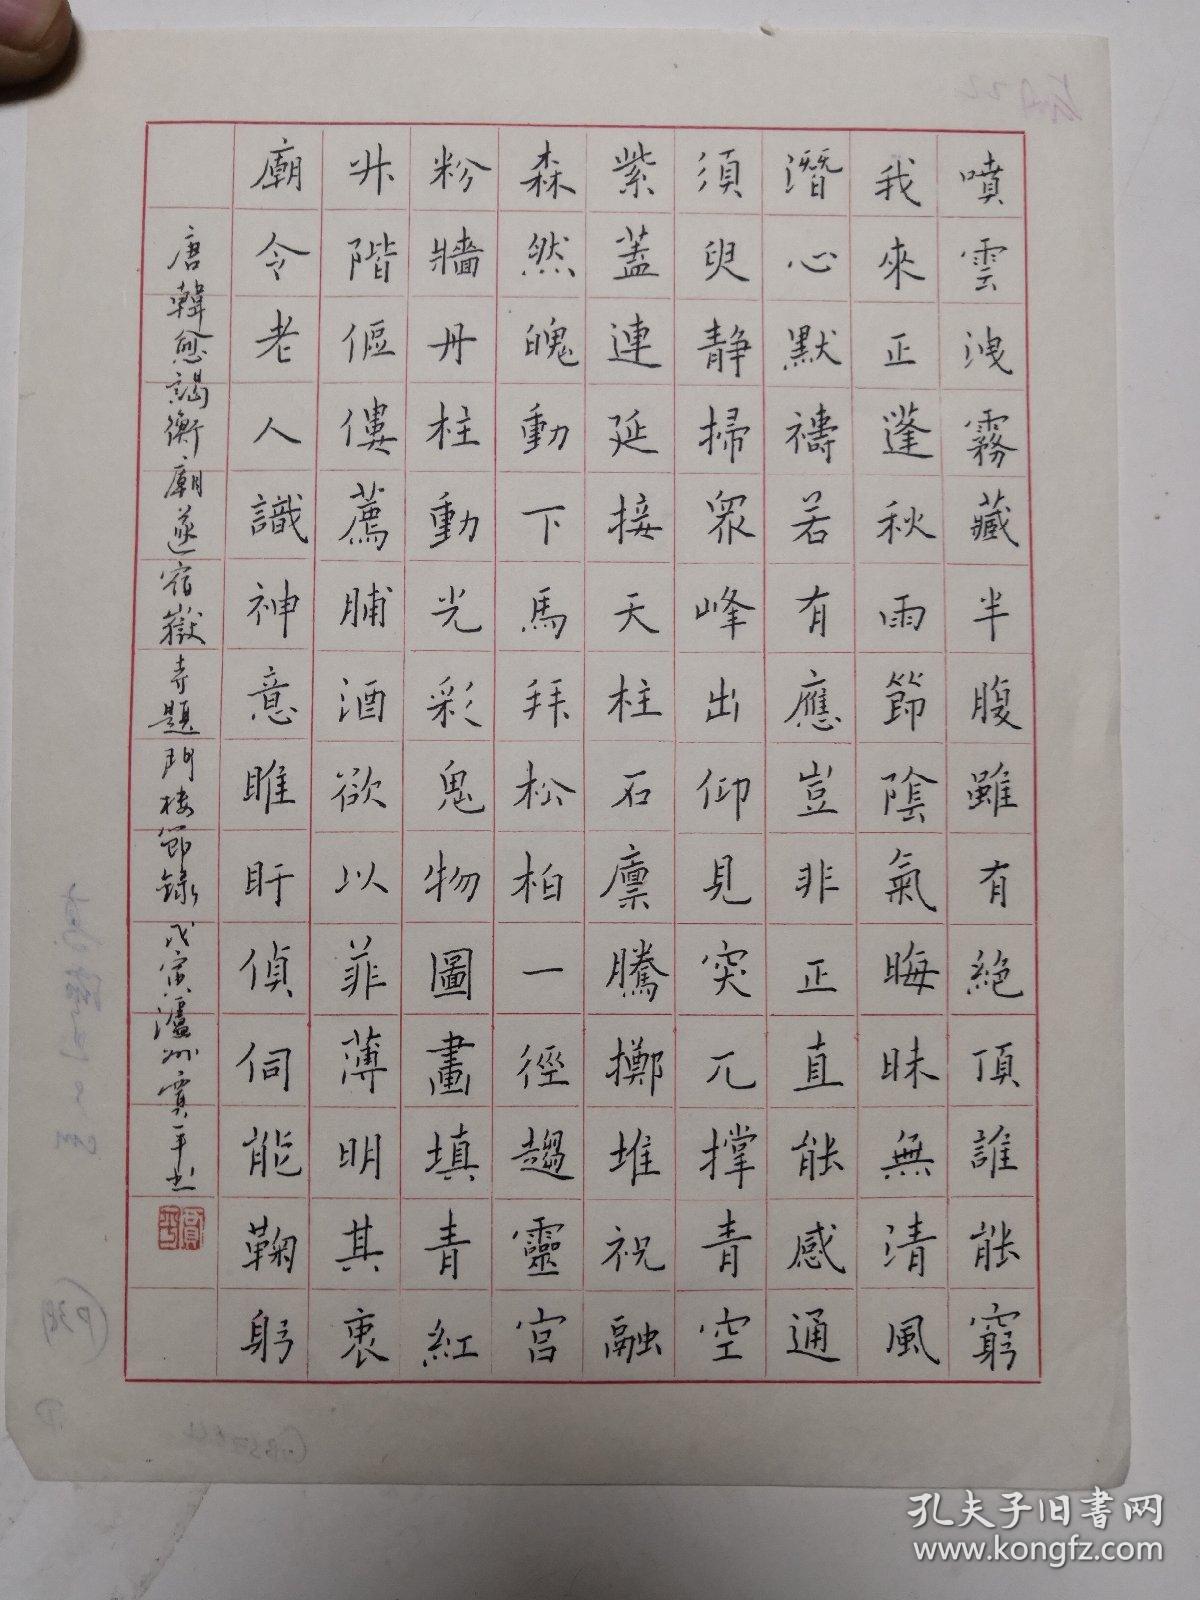 噴雲洩霧藏半腹雖有絶頂誰能窮
我來正逢秋雨節陰氣晦昧無清風
潛心默禱若有應豈非正直能感通
須臾静掃衆峰出仰見突兀撑青空
紫蓋連延接天柱石廪騰擲堆祝融
森然魄動下馬拜松柏一徑趨靈宫
粉牆丹柱動光彩鬼物圖畫填青紅
升階傴僂薦脯酒欲以菲薄明其衷
廟令老人識神意睢盱偵伺能鞠躬
唐韓愈謁衡廟遂宿嶽寺題門樓節録 戊寅瀘州賈一平書
孔夫子旧书网
www.kongfz.com